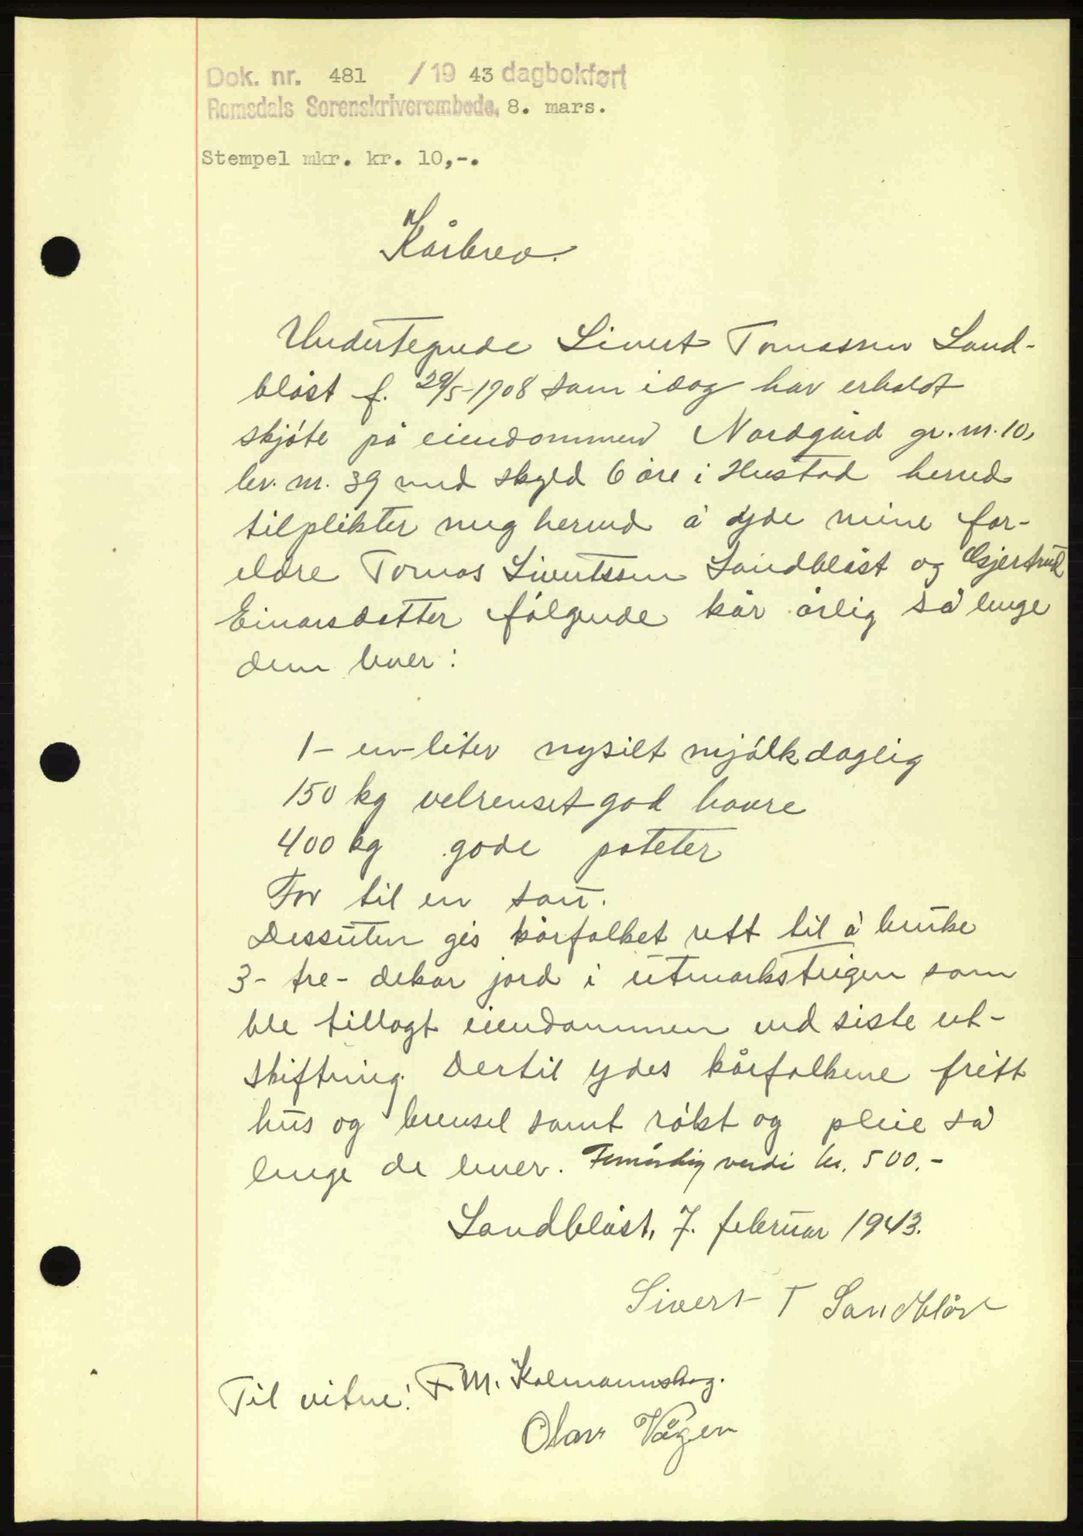 Dok. nr. 481 / 19 43 dagbokført
Romsdals Sorenskriverembede, 8. mars.
Stempel mkr. kr. 10,-.
Kårbrev.
Undertegnede Sivert Tomassen Sand-
bløst f. 29/5-1908 som idag har erholdt
skjøte på eiendommen Nordgård gr. nr. 10,
br. nr. 39 med skyld 6 øre i Hustad herred
tilplikter meg herved å yde mine for-
eldre Tomas Sivertssen Sandbløst og Gjertrud
Einarsdatter følgende kår årlig så lenge
dem lever:
1- en-liter nysilt mjølk daglig
150 kg velrenset god havre
400 kg gode poteter
For til en sau.
Dessuten gis kårfolket rett til å bruke
3- tre- dekar jord i utmarksteigen som
ble tillagt eiendommen ved siste ut-
skiftning. Dertil ydes kårfolkene fritt
hus og brensel samt røkt og pleie så
lenge de lever. Femårlig verdi kr. 500.-
Sandbløst, 7. februar 1943.
Sivert T Sandbløst
Til vitne: F. M. Kolmannskog.
Olav Vågen